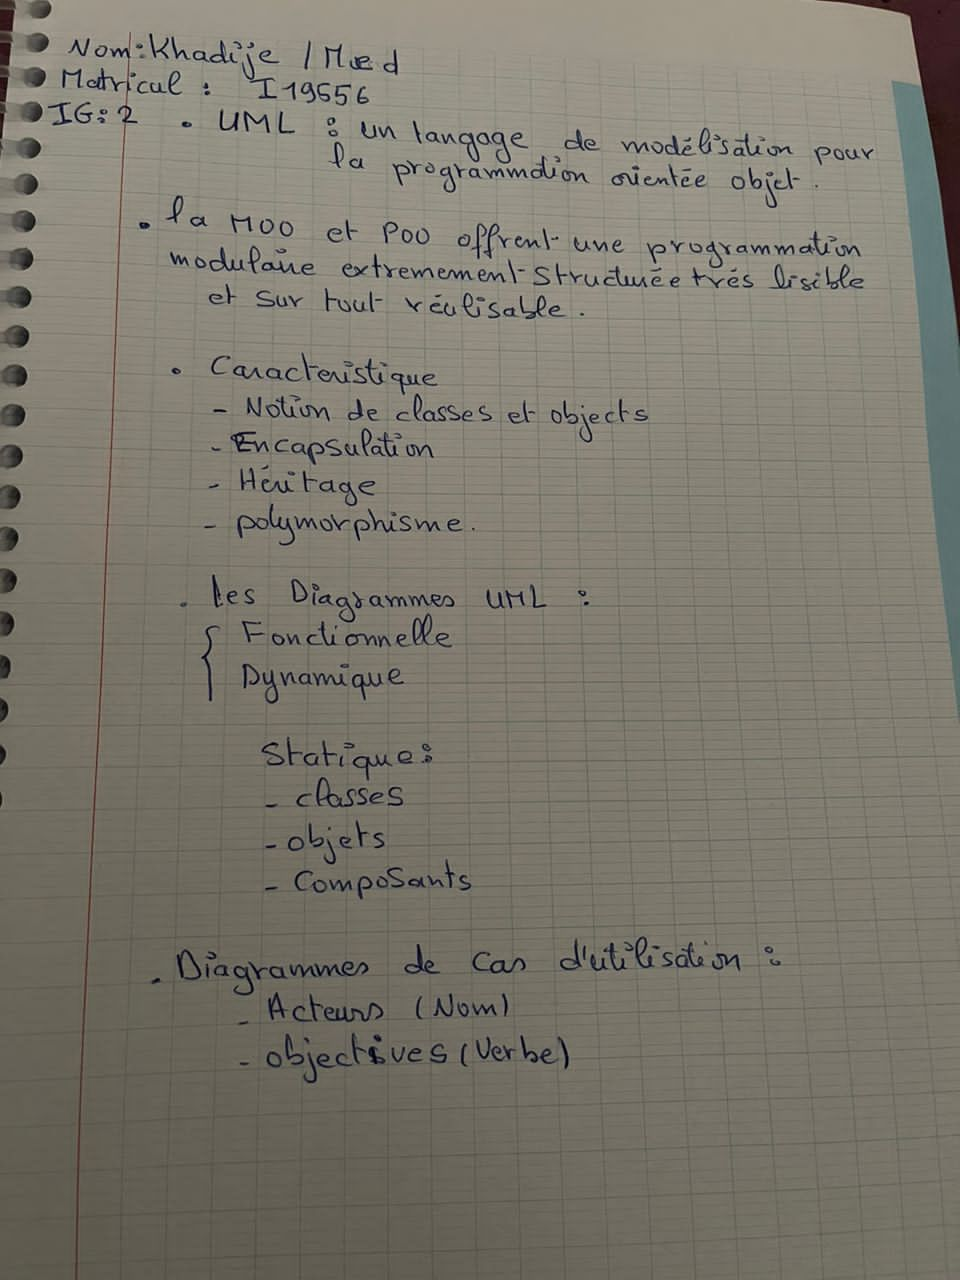 Nom: Khadije / Med
Matrical : I19656
IG: 2 . UML : un langage de modélisation pour
la programmation orientée objet.
. la MOO et POO offrent une programmation
modulaire extremement structurée trés lisible
et sur tout réulisable.
. Caracteristique
- Notion de classes et objects
- Encapsulation
- Héritage
- polymorphisme.
. les Diagrammes UML :
{ Fonctionnelle
Dynamique
Statique :
- classes
- objets
- Composants
. Diagrammes de Cas d'utilisation :
- Acteurs (Nom)
- objectives (Verbe)